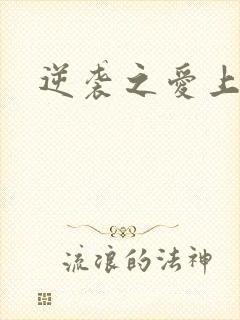 逆袭之爱上
流浪的法神